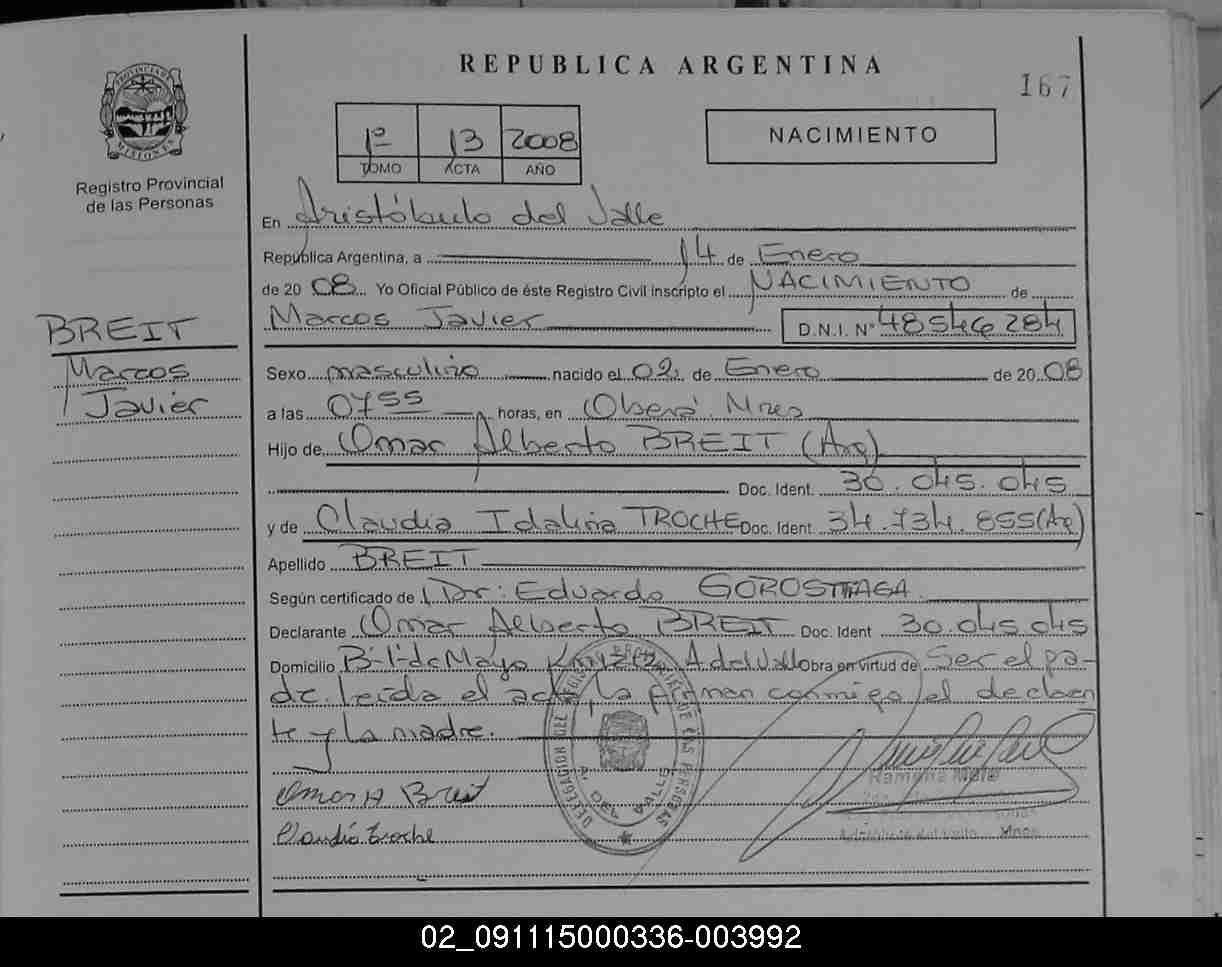 REPUBLICA ARGENTINA
167
PROVINCIA DE
MISIONES
Registro Provincial
de las Personas
1º 13 2008
TOMO ACTA AÑO
NACIMIENTO
En Aristóbulo del Valle
Republica Argentina, a 14 de Enero
de 2008 Yo Oficial Público de éste Registro Civil inscripto el NACIMIENTO de
Marcos Javier D.N.I. Nº 48546284
BREIT
Marcos
Javier
Sexo masculino nacido el 02 de Enero de 2008
a las 0755 horas, en Oberá Mnes
Hijo de Omar Alberto BREIT (Arg)
Doc. Ident. 30.045.045
y de Claudia Idalina TROCHE Doc. Ident 34.734.855 (Ar)
Apellido BREIT
Según certificado de Dr: Eduardo GOROSTIAGA
Declarante Omar Alberto BREIT Doc. Ident 30.045.045
Domicilio B-1º de Mayo Km 1212 A del Valle obra en virtud de Ser el pa-
dre. Leída el acta, la firman conmigo el declaran
te y La madre.
Omar A Breit
Claudia Troche
DELEGACION DEL REGISTRO PROVINCIAL DE LAS PERSONAS
A. DEL VALLE
Ramona
Mnes
02_091115000336-003992